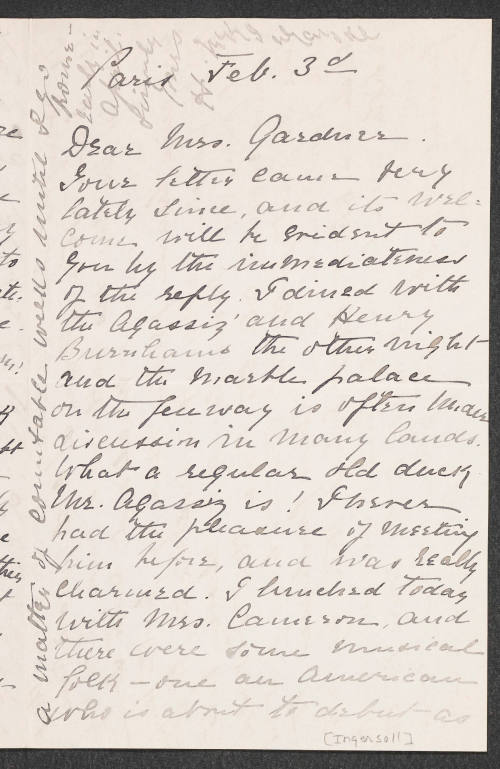 Paris Feb. 3d
Dear Mrs. Gardner.
Your letter came very
lately since, and its wel-
come will be evident to
you by the immediateness
of the reply. I dined with
the Agassiz' and Henry
Burnhams the other night
and the marble palace
on the fenway is often under
discussion in many lands.
What a regular old duck
Mr. Agassiz is! I never
had the pleasure of meeting
him before, and was really
charmed. I lunched today
with Mrs. Cameron, and
there were some musical
folk – one an American
who is about to debut as
a matter of countable weeks until I go
home –
[Ingersoll]